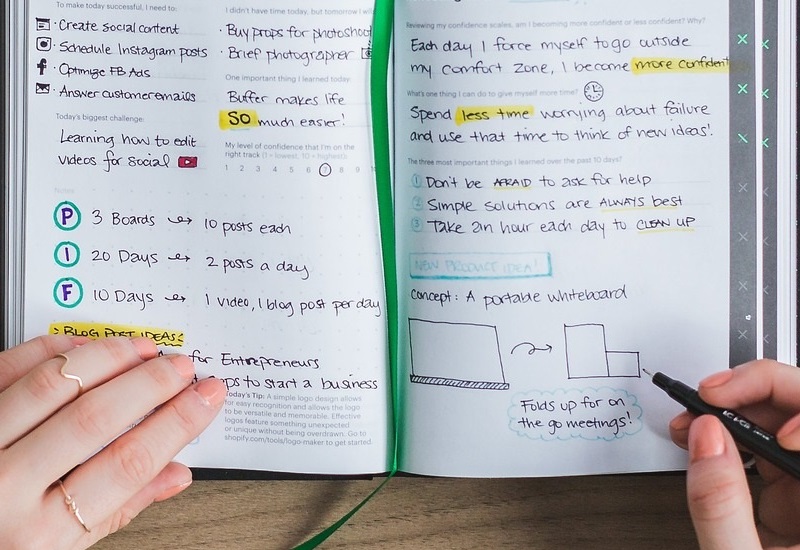 To make today successful, I need to:
Create social content
Schedule Instagram posts
Optimize FB Ads
Answer customer emails
Today's biggest challenge:
Learning how to edit
videos for social
I didn't have time today, but tomorrow I will
Buy props for photoshoot
Brief photographer
One important thing I learned today
Buffer makes life
SO much easier!
My level of confidence that I'm on the
right track (1 = lowest, 10 = highest):
1 2 3 4 5 6 7 8 9
Notes
P 3 Boards → 10 posts each
I 20 Days → 2 posts a day
F 10 Days → 1 video, 1 blog post per day
> BLOG POST IDEAS <
for Entrepreneurs
to start a business
Today's Tip: A simple logo design allows
for easy recognition and allows the logo
to be versatile and memorable. Effective
logos feature something unexpected
or unique without being overdrawn. Go to
shopify.com/tools/logo-maker to get started.
Reviewing my confidence scales, am I becoming more confident or less confident? Why?
Each day I force myself to go outside
my comfort zone, I become more confident
What's one thing I can do to give myself more time?
Spend less time worrying about failure
and use that time to think of new ideas!
The three most important things I learned over the past 10 days?
1 Don't be AFRAID to ask for help
2 Simple solutions are ALWAYS best
3 Take an hour each day to CLEAN UP
NEW PRODUCT IDEA!
concept: A portable whiteboard
Folds up for on
the go meetings!